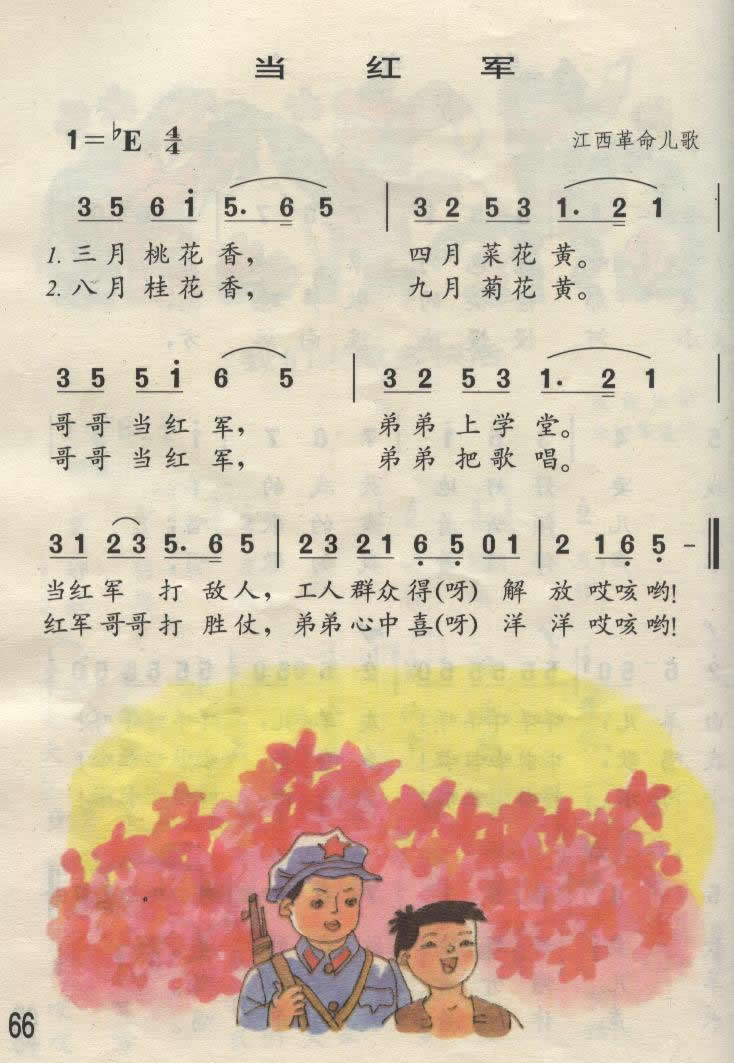 当红军
1=♭E 4/4 江西革命儿歌
3 5 6 i 5. 6 5 | 3 2 5 3 1. 2 1 |
1. 三月桃花香， 四月菜花黄。
2. 八月桂花香， 九月菊花黄。
3 5 5 i 6 5 | 3 2 5 3 1. 2 1 |
哥哥当红军， 弟弟上学堂。
哥哥当红军， 弟弟把歌唱。
3 1 2 3 5. 6 5 | 2 3 2 1 6̣ 5̣ 0 1 | 2 1 6̣ 5̣ - ‖
当红军 打敌人，工人群众得(呀) 解放哎咳哟!
红军哥哥打胜仗，弟弟心中喜(呀) 洋洋哎咳哟!
66